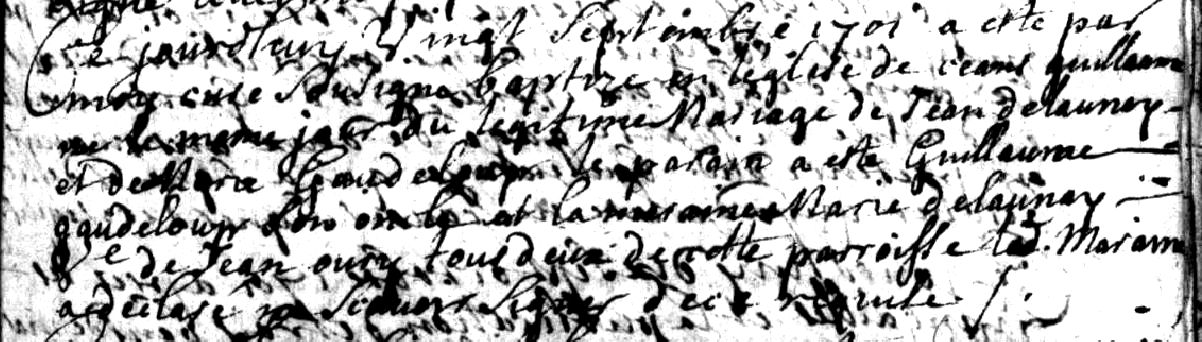 Ce jourdhuy Vingt Septembre 1701 a este par
moy curé Sousigné baptize en leglise de ceans guillaume
ne le meme jour du legitime Mariage de Jean delaunay
et de Marie Gaudeloup le parain a este Guillaume
gaudeloup Son oncle et la maraine Marie delaunay
Ve de Jean oury tous deux de cette parroisse lad. Maraine
a declaré ne Scavoir Signer de ce requise